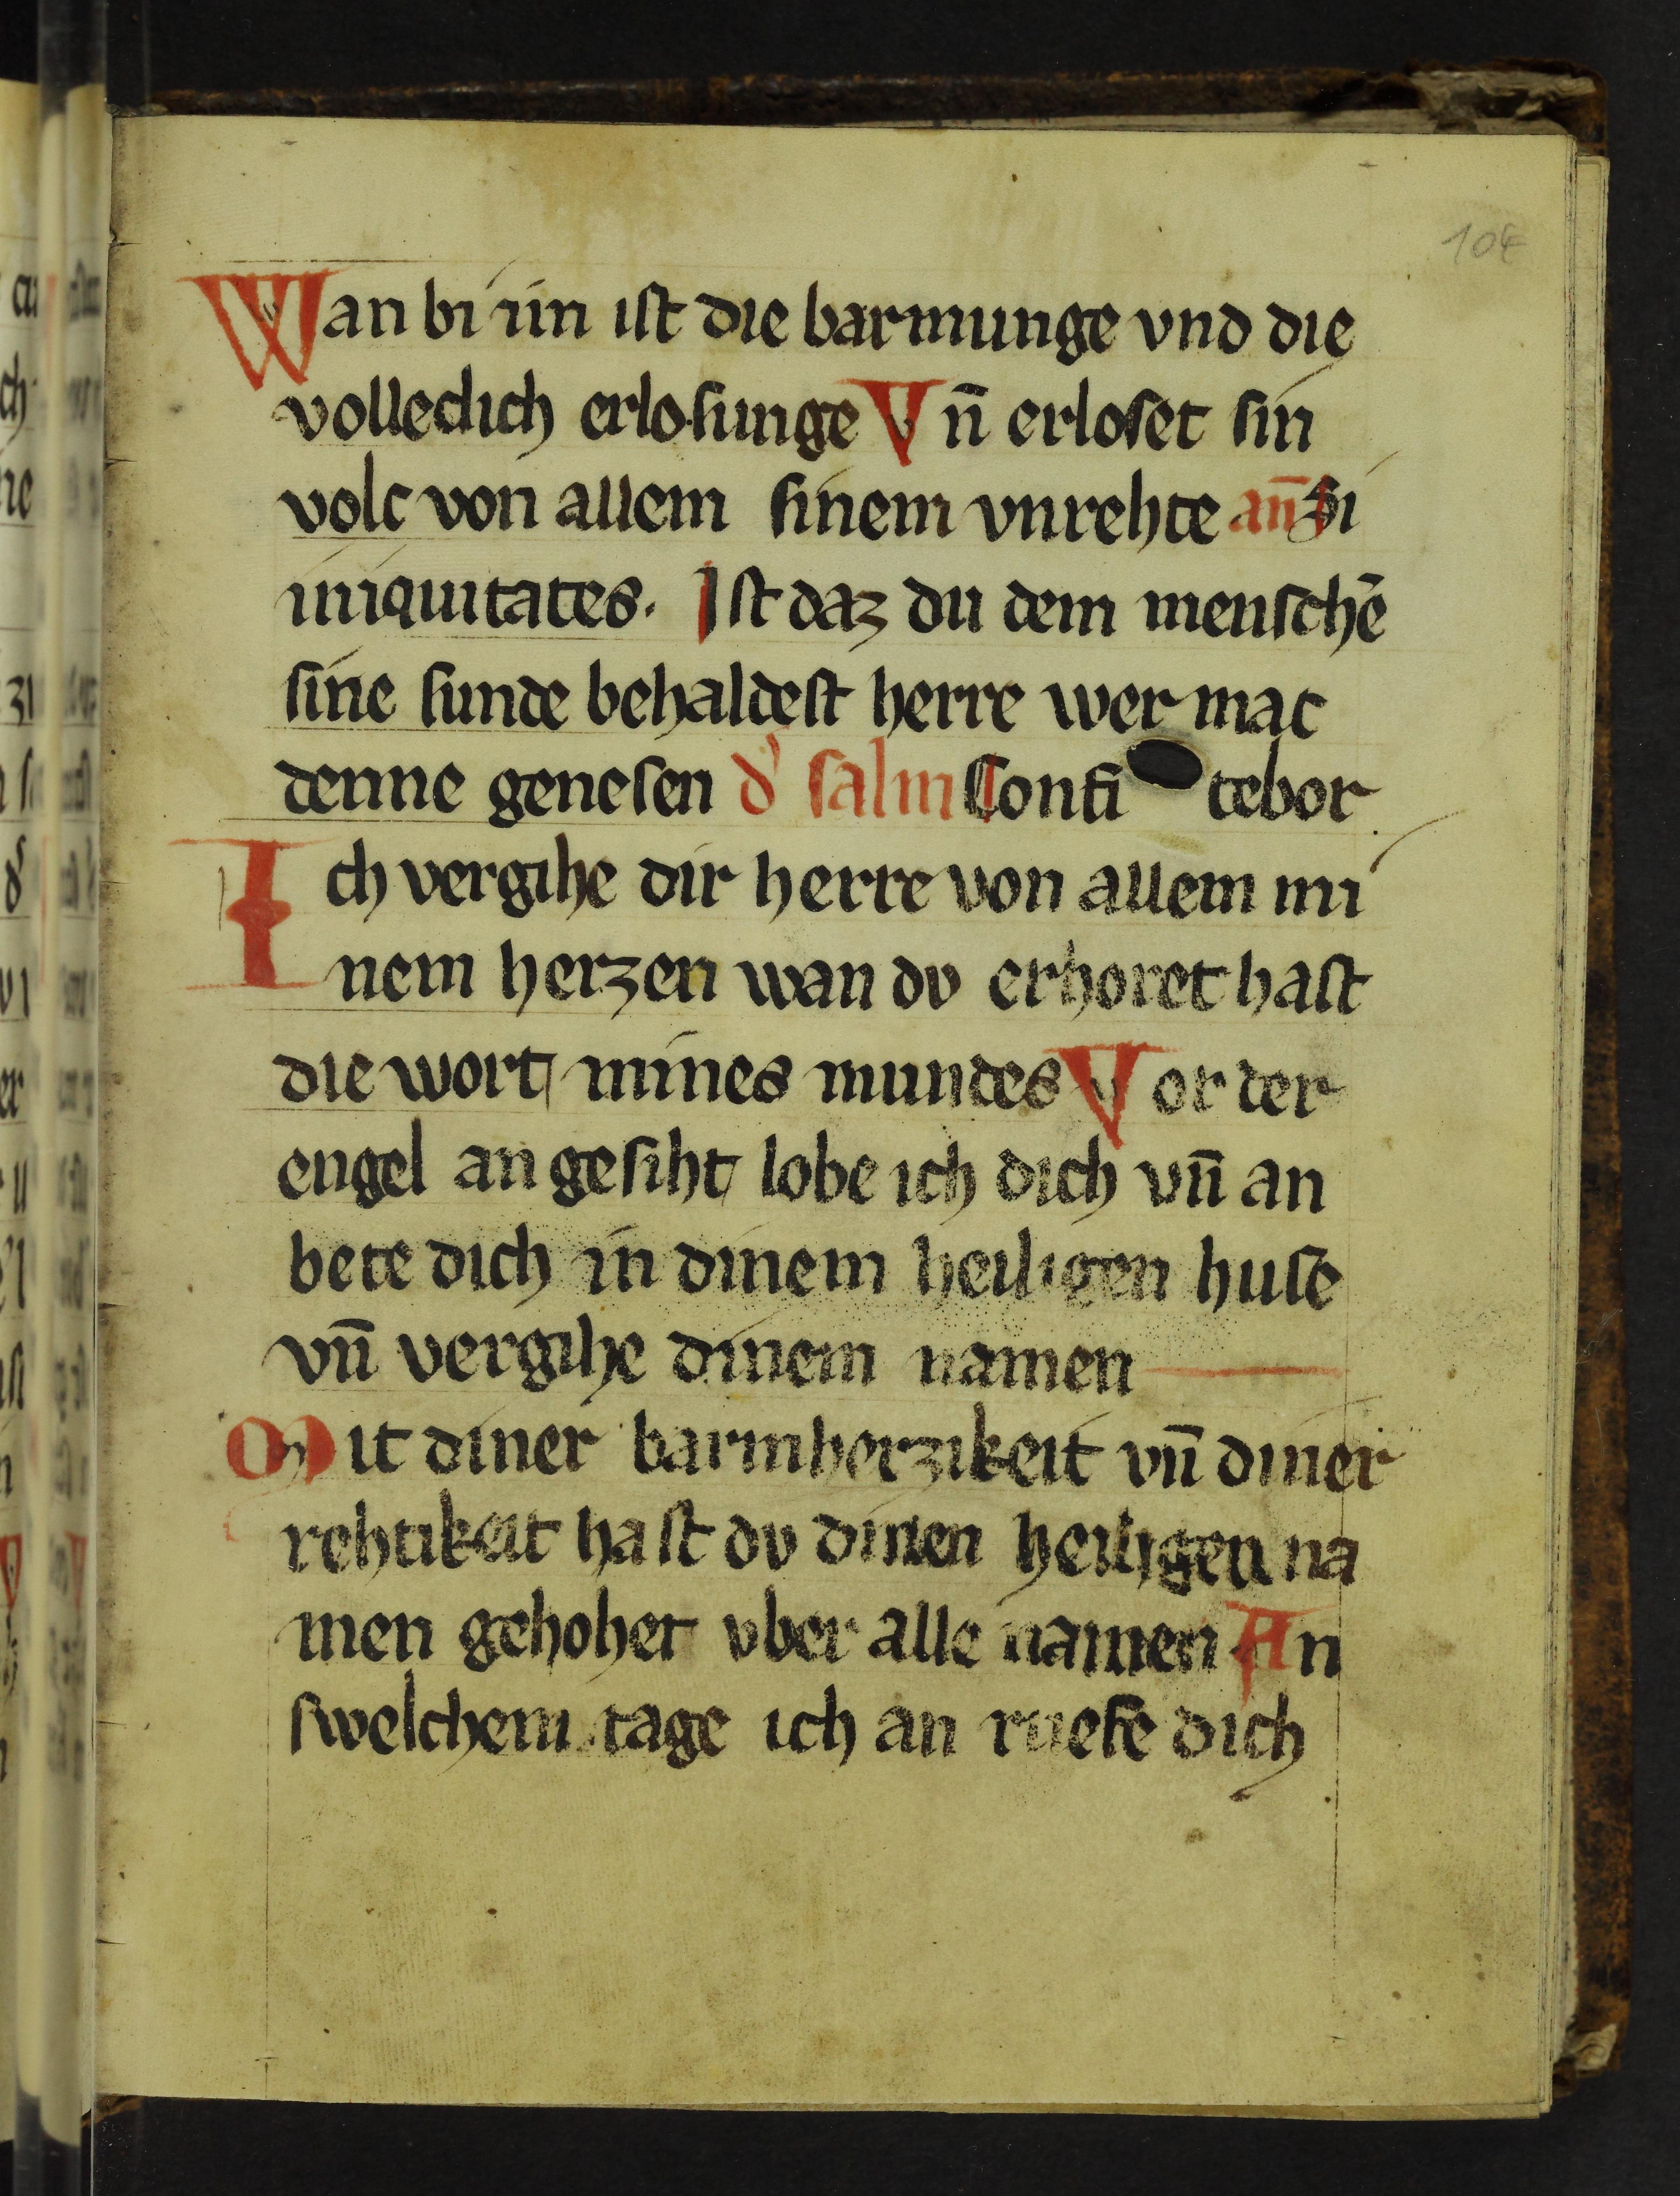 104
Wan bi im ist die barmunge vnd die
volleclich erlosunge Vn̄ erloset sin
volc von allem sinem vnrehte an̄ Si
iniquitates. Ist daz du dem menschē
sine sunde behaldest herre wer mac
denne genesen d' salm Confi tebor
Ich vergihe dir herre von allem mi
nem herzen wan dv erhoret hast
die wort mines mundes Vor der
engel an gesiht lobe ich dich vn̄ an
bete dich in dinem heiligen huse
vn̄ vergihe dinem namen
Mit diner barmherzikeit vn̄ diner
rehtikeit hast dv dinen heiligen na
men gehohet vber alle namen An
swelchem tage ich an ruefe dich